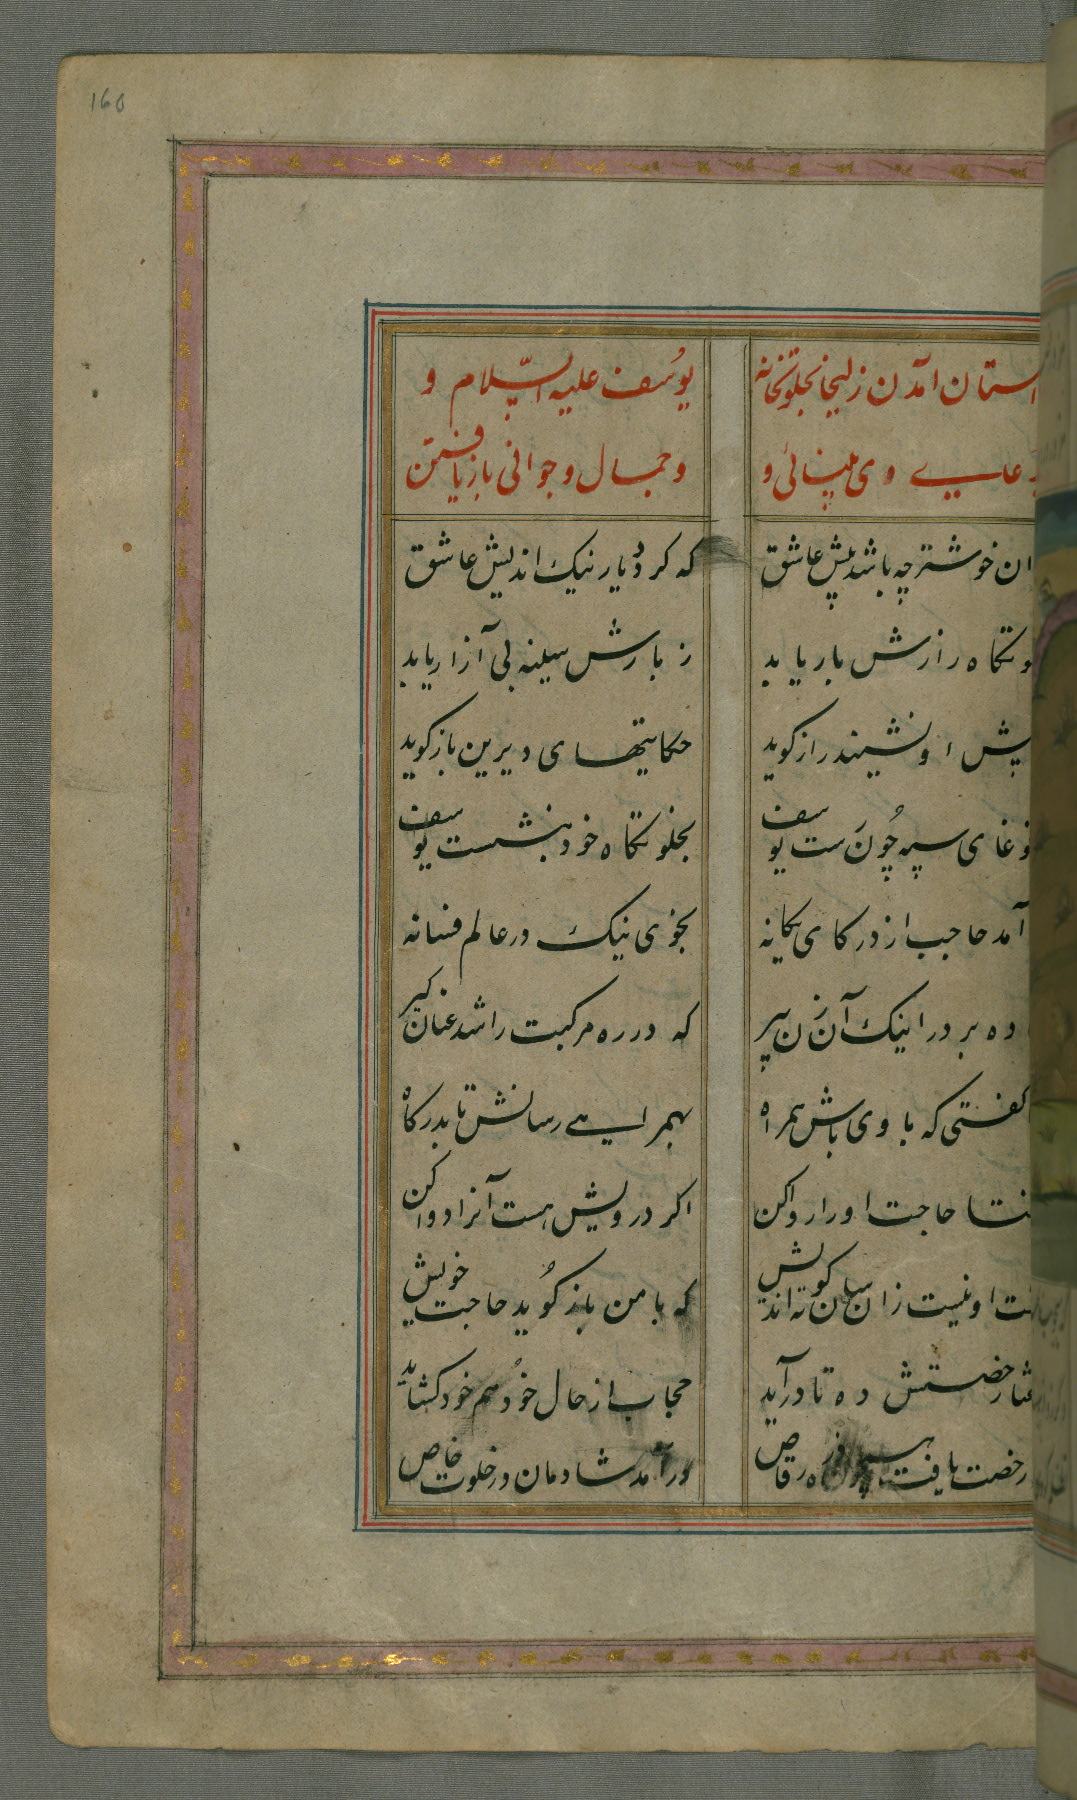 160
استان امدن زلیخا بخلوتخانه یوسف علیه السلام و
عای وی بینائی و و جمال و جوانی باز یافتن
ان خوشتر چه باشد پیش عاشق که کردد یار نیک اندیش عاشق
وتکاه رازش بار یابد ز بارش سینه بی آزار یابد
پیش او نشیند راز کوید حکایتهای دیرین باز کوید
غوغای سپه چون رست یوسف بخلوتکاه خود بنشست یوسف
آمد حاجب از در کای یکانه بخوی نیک در عالم فسانه
ده بر در اینک آن زن پیر که در ره مرکبت را شد عنان کیر
کفتی که با وی باش همراه بهمراهی رسانش تا بدرکاه
حاجت او را روا کن اکر درویش هست آنرا دوا کن
او نیست زان سان کوته اندیش که با من باز کوید حاجت خویش
رخصتش ده تا درآید حجاب از حال خود هم خود کشاید
رخصت یافت همچون ذره رقاص درآمد شادمان در خلوت خاص